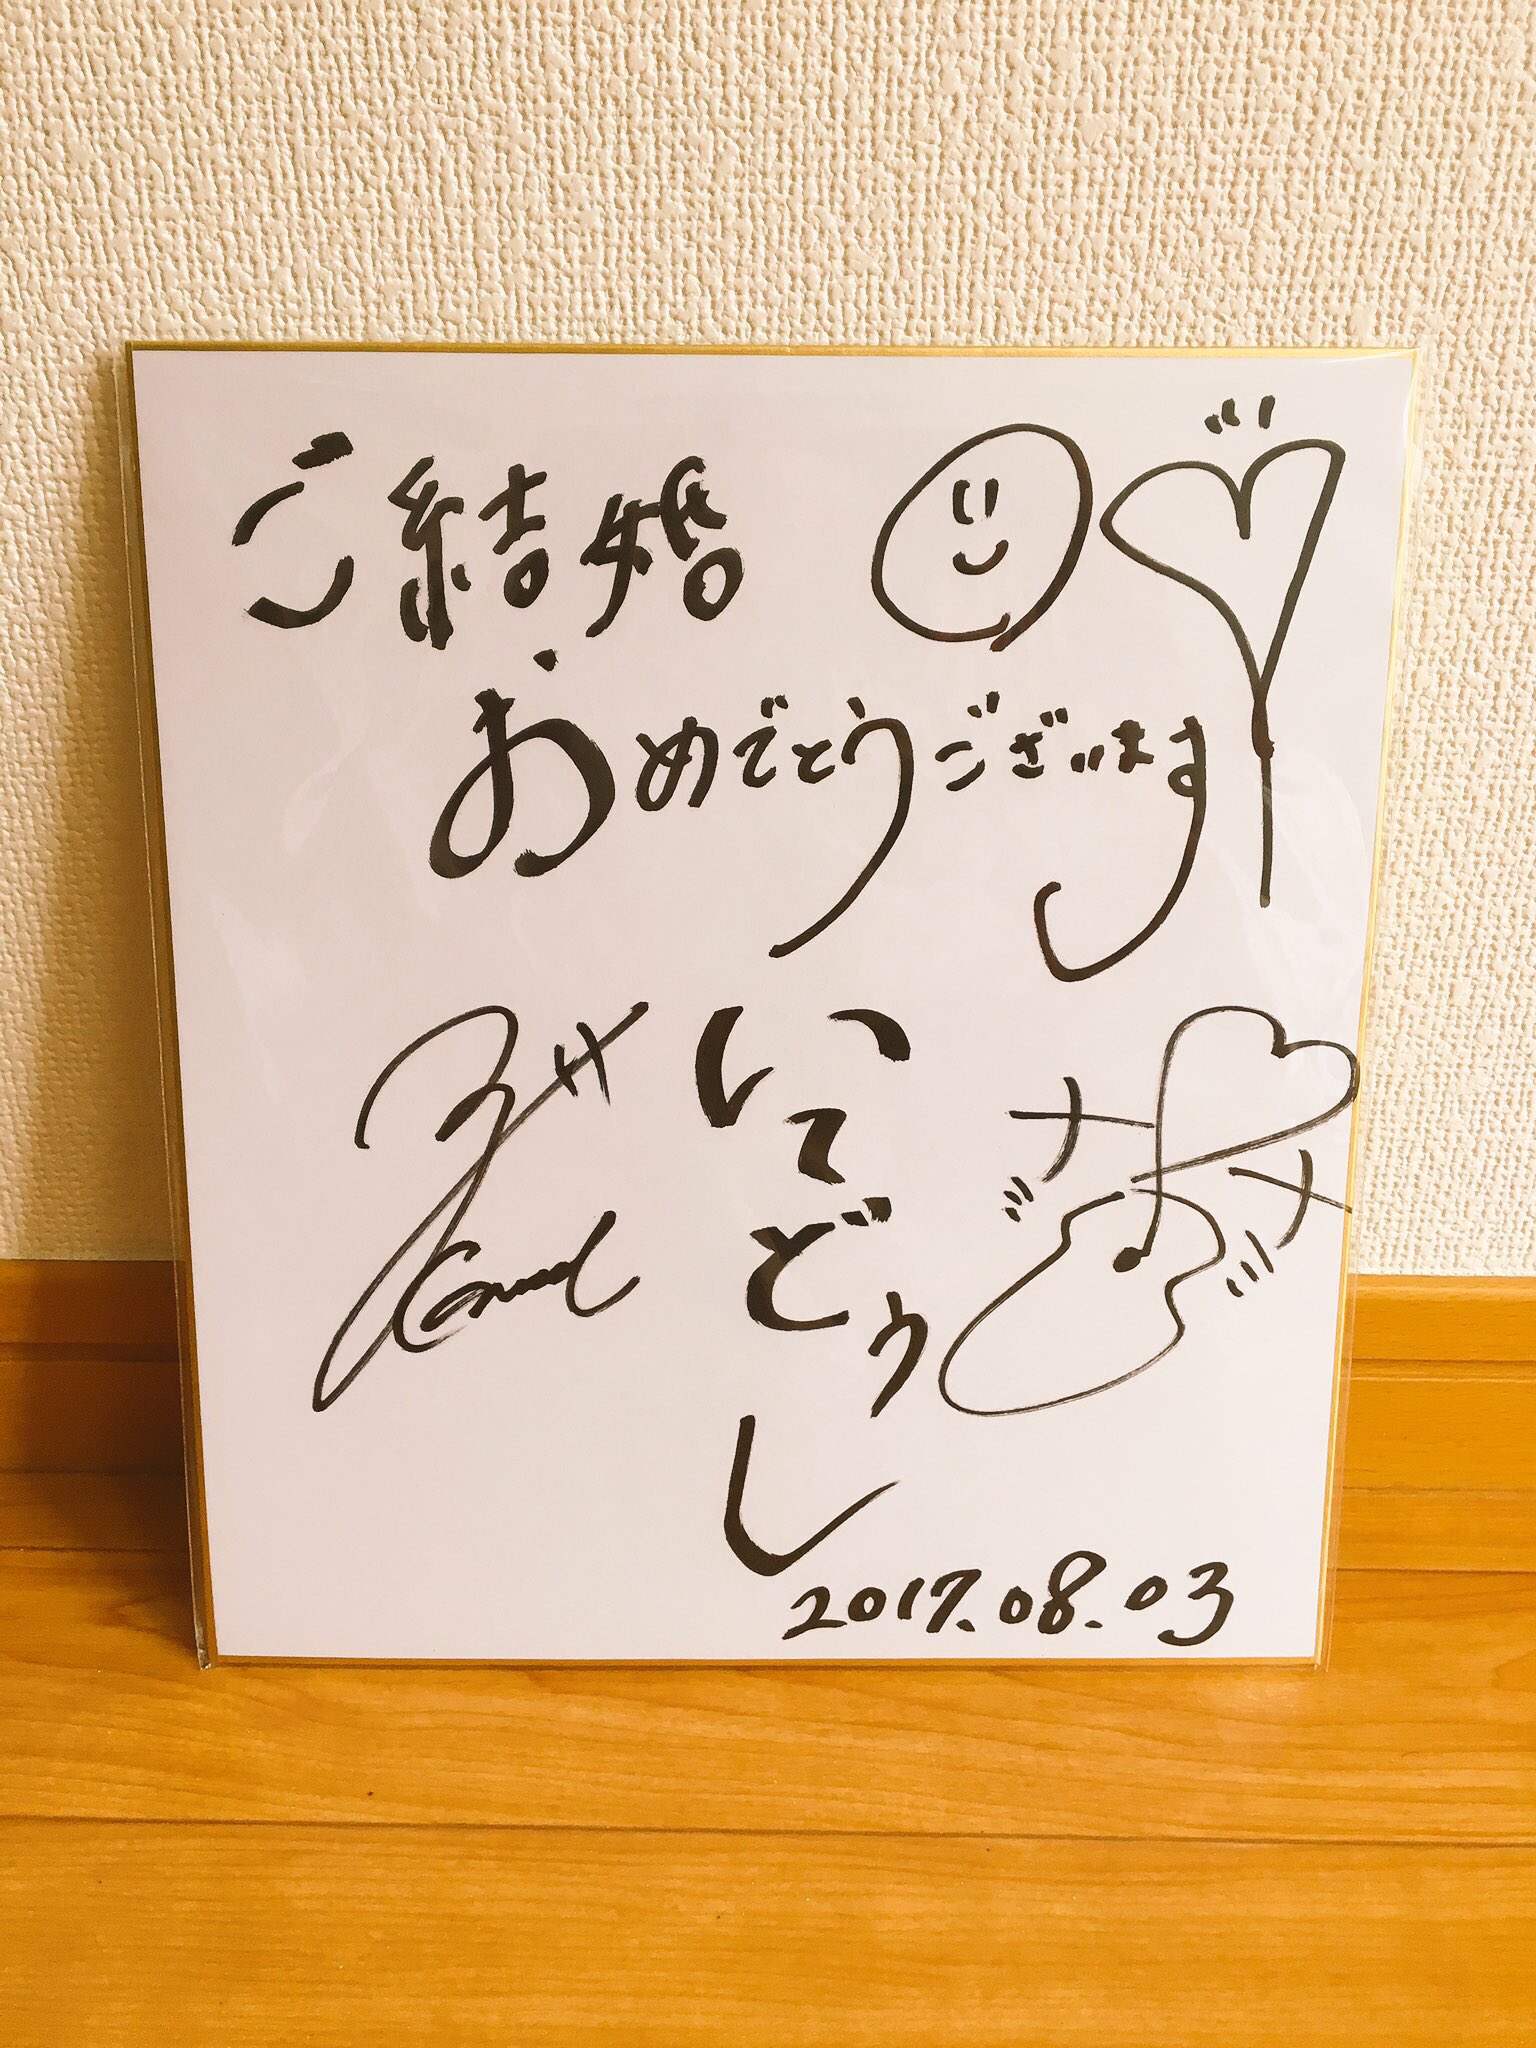 ご結婚
おめでとうございます
いてどぅし
2017.08.03